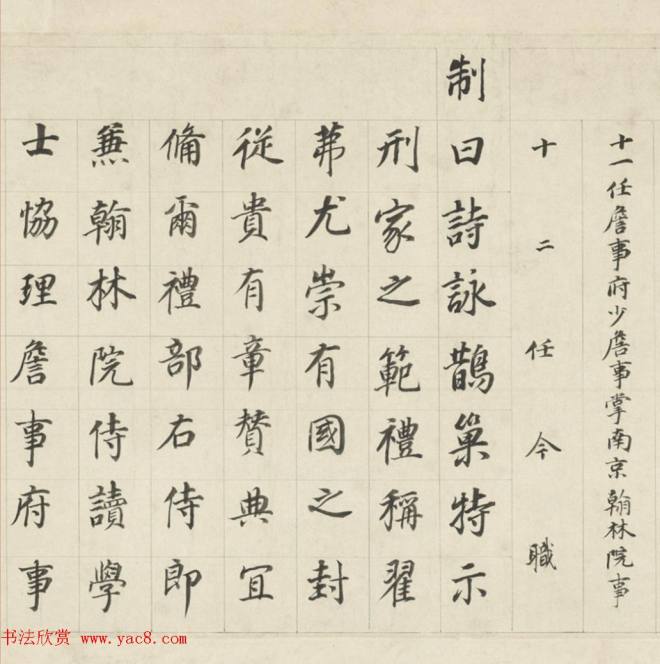 十一任詹事府少詹事掌南京翰林院事
十二任今職
制曰詩詠鵲巢特示
刑家之範禮稱翟
茀尤崇有國之封
從貴有章贊典宜
俻爾禮部右侍郎
兼翰林院侍讀學
士恊理詹事府事
书法欣赏 www.yac8.com